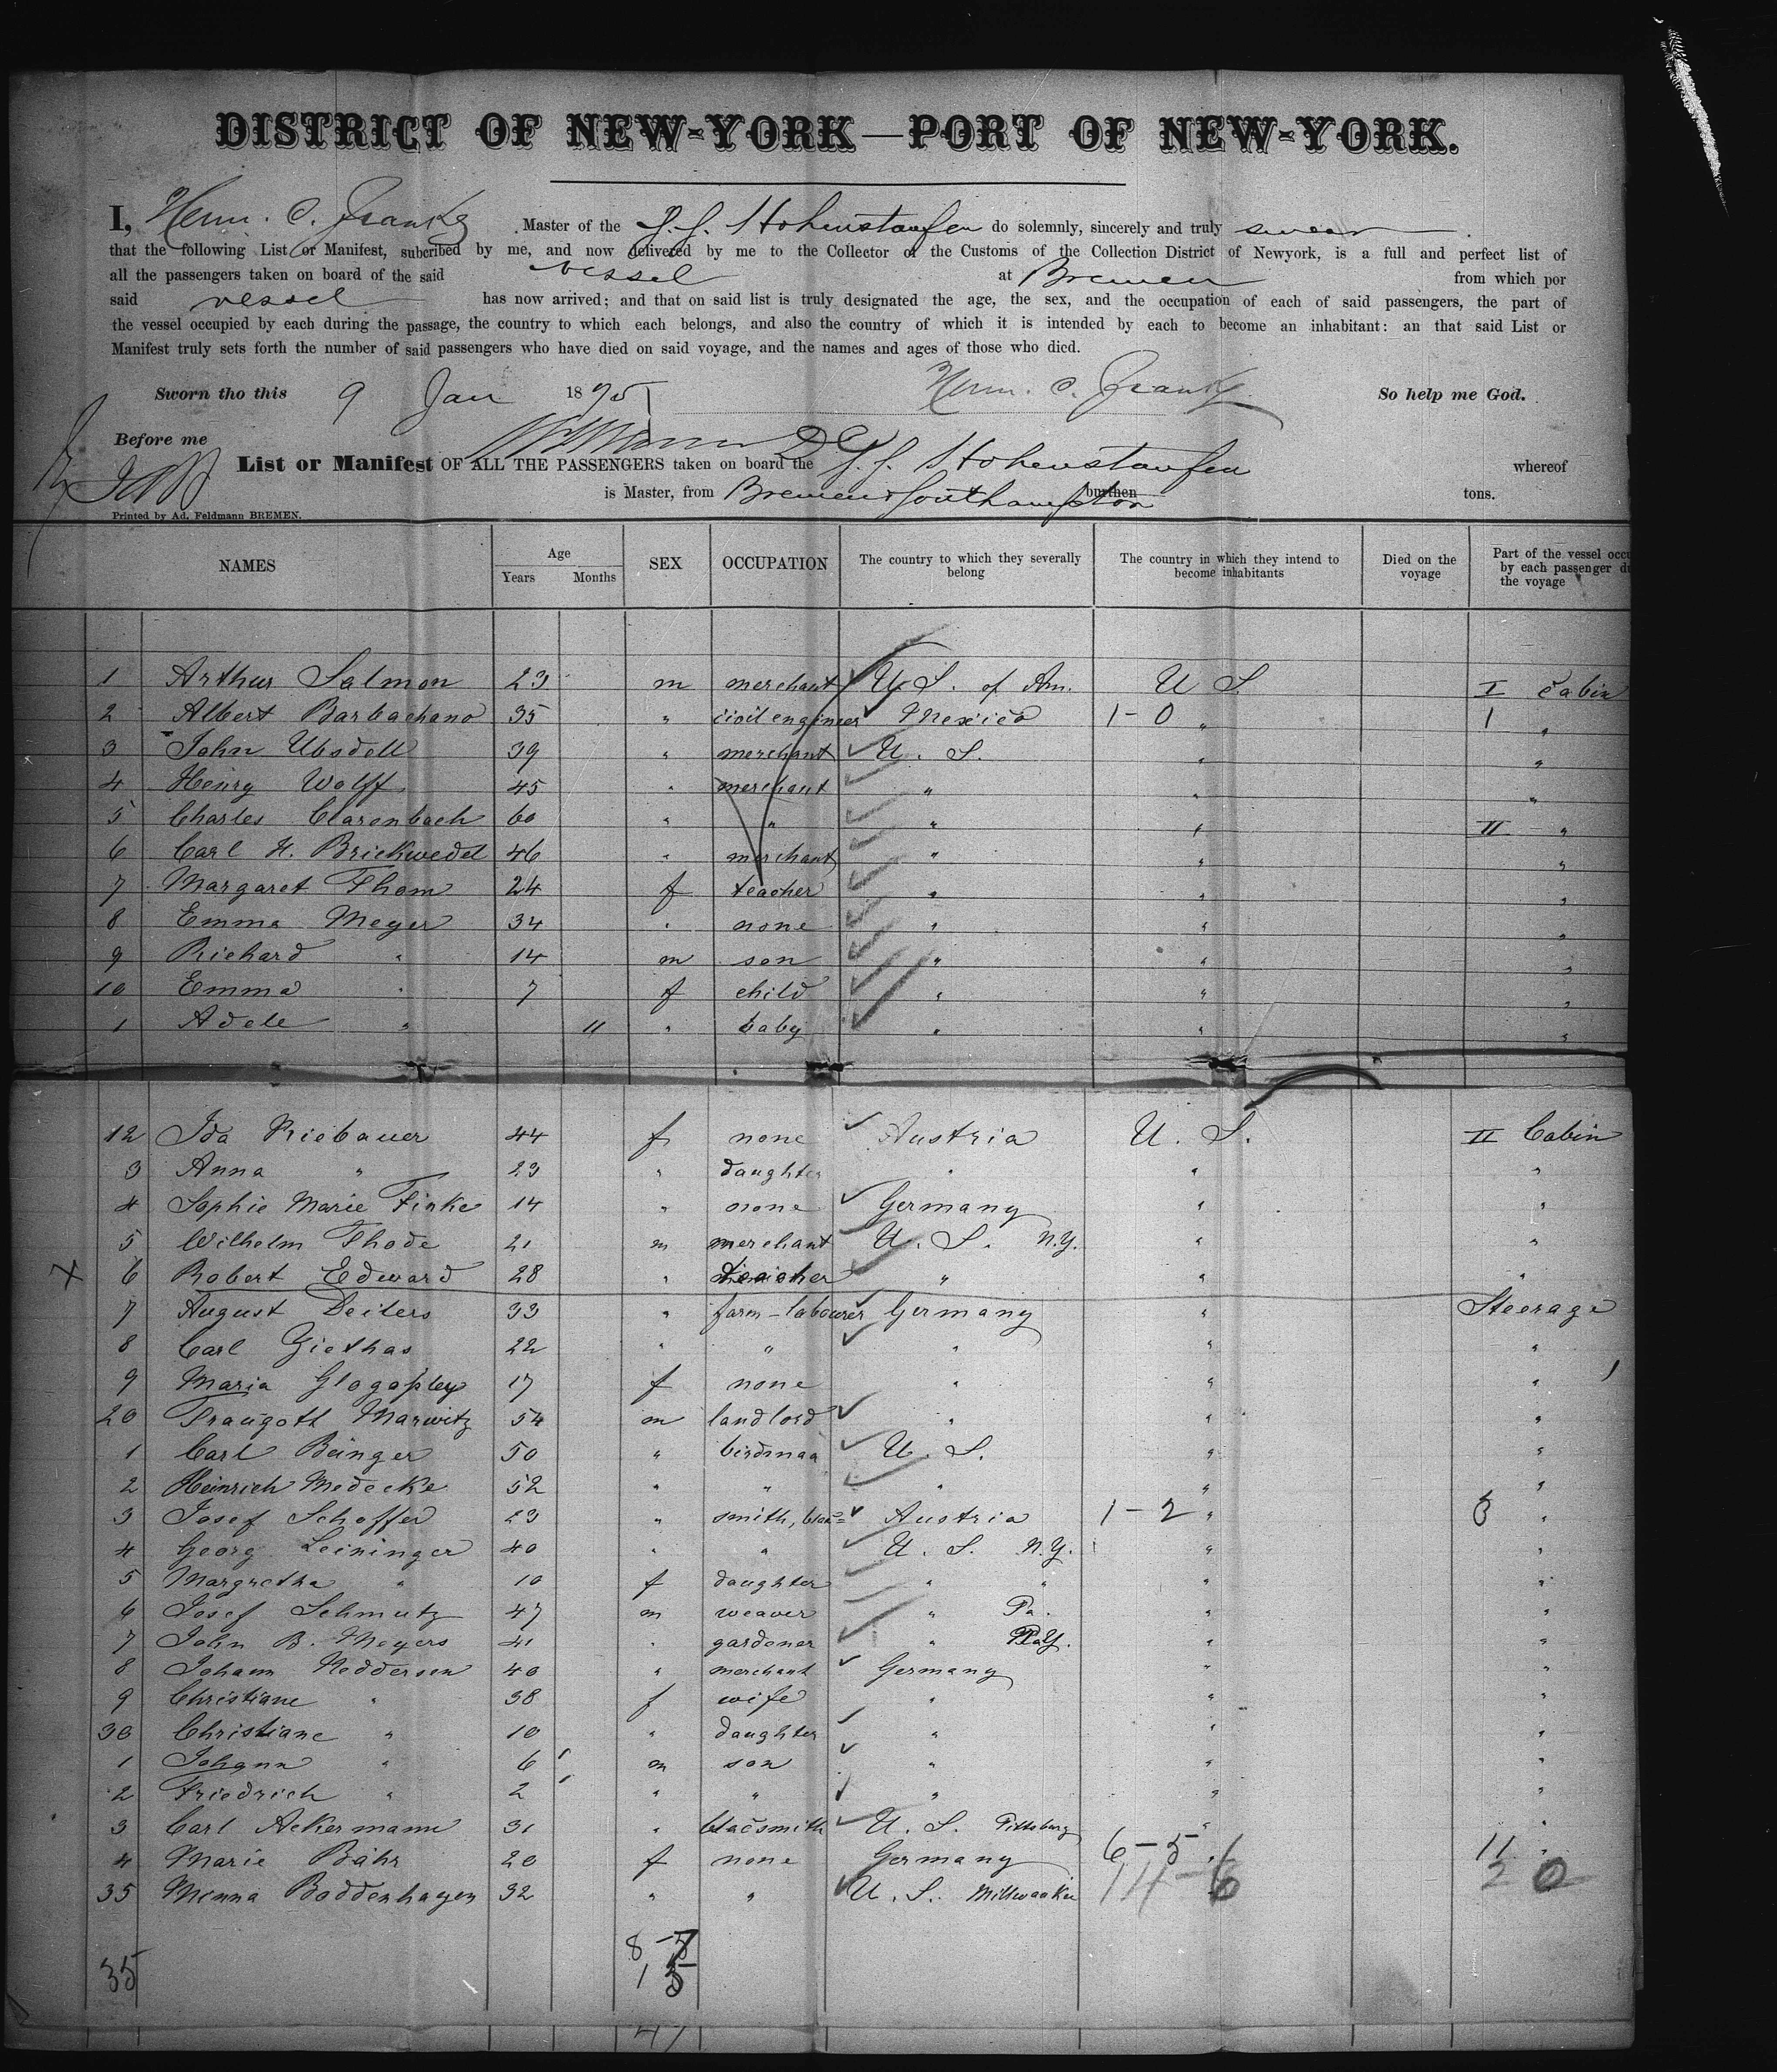 DISTRICT OF NEW-YORK—PORT OF NEW-YORK.
I, Herm. C. Franke Master of the S.S. Hohenstaufen do solemnly, sincerely and truly swear
that the following List or Manifest, subcribed by me, and now delivered by me to the Collector of the Customs of the Collection District of Newyork, is a full and perfect list of
all the passengers taken on board of the said vessel at Bremen from which por
said vessel has now arrived; and that on said list is truly designated the age, the sex, and the occupation of each of said passengers, the part of
the vessel occupied by each during the passage, the country to which each belongs, and also the country of which it is intended by each to become an inhabitant: an that said List or
Manifest truly sets forth the number of said passengers who have died on said voyage, and the names and ages of those who died.
Sworn tho this 9 Jan 1875 Herm. C. Franke So help me God.
Before me
List or Manifest OF ALL THE PASSENGERS taken on board the S.S. Hohenstaufen whereof
is Master, from Bremen & Southampton burthen tons.
Printed by Ad. Feldmann BREMEN.
NAMES Age Years Months SEX OCCUPATION The country to which they severally belong The country in which they intend to become inhabitants Died on the voyage Part of the vessel occu by each passenger du the voyage
1 Arthur Salmon 23 m merchant U S. of Am. U S. I Cabin
2 Albert Barbachano 35 " civil engineer Mexico 1-0 " 1 "
3 John Ubsdell 39 " merchant U. S. " "
4 Henry Wolff 45 " merchant " " "
5 Charles Clarenbach 60 " " " " II "
6 Carl H. Brickwedel 46 " merchant " " "
7 Margaret Thom 24 f teacher " " "
8 Emma Meyer 34 " none " " "
9 Richard " 14 m son " " "
10 Emma " 7 f child " " "
1 Adele " 11 " baby " " "
12 Ida Riebauer 44 f none Austria U. S. II Cabin
3 Anna " 23 " daughter " " "
4 Sophie Marie Finke 14 " none Germany " "
5 Wilhelm Thode 21 m merchant U. S. N.Y. " "
X 6 Robert Edward 28 " teacher " " "
7 August Deiters 33 " farm-labourer Germany " Steerage
8 Carl Giethas 22 " " " " "
9 Maria 17 f none " " "
20 Traugott Marwitz 54 m landlord " " "
1 Carl Beinger 50 " birdman U. S. " "
2 Heinrich Medecke 52 " " " " "
3 Josef Schoffer 23 " smith, blac= Austria 1-2 " 3 "
4 Georg Leininger 40 " " U. S. N.Y. " "
5 Margretha " 10 f daughter " " " "
6 Josef Schmutz 47 m weaver " Pa. " "
7 John B. Meyers 41 " gardener " " "
8 Johann Neddersen 40 " merchant Germany " "
9 Christiane " 38 f wife " " "
30 Christiane " 10 " daughter " " "
1 Johann " 6 m son " " "
2 Friedrich " 2 " " " " "
3 Carl Ackermann 31 " blacsmith U. S. Pittsburg " "
4 Marie Bähr 20 f none Germany 6-5 " 11 "
35 Menna Boddenhagen 32 " " U. S. Millwaukie 14-6 20
35